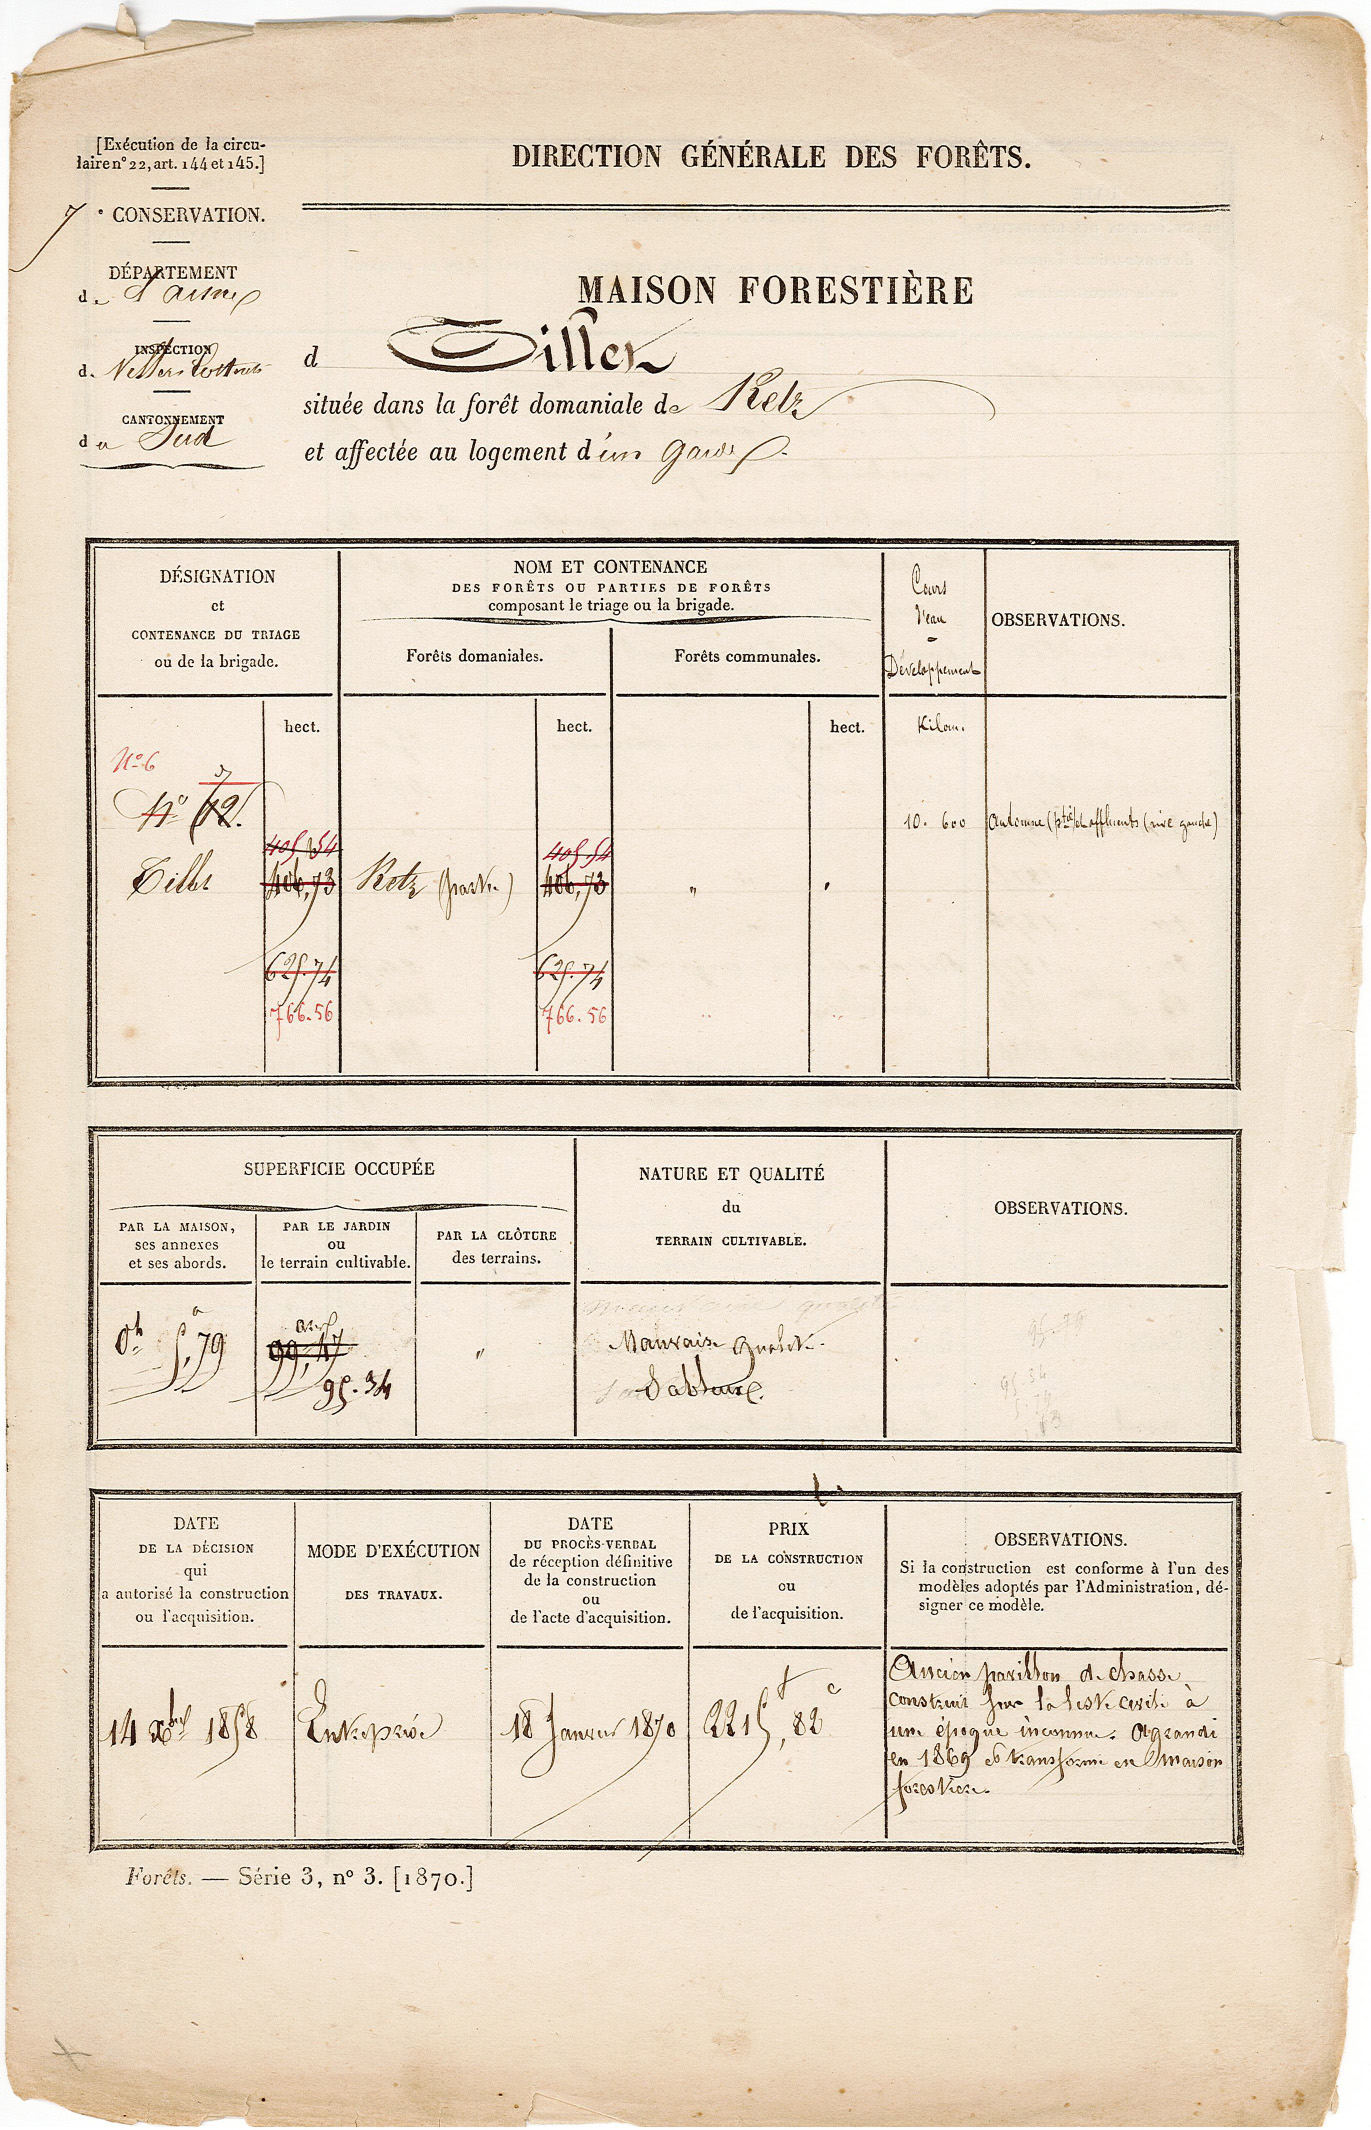 [Exécution de la circu-
laire n° 22, art. 144 et 145.]
7e CONSERVATION.
DÉPARTEMENT
de l'aisne
INSPECTION
de Villers Cotterets
CANTONNEMENT
du Sud
DIRECTION GÉNÉRALE DES FORÊTS.
MAISON FORESTIÈRE
d Tillet
située dans la forêt domaniale de Retz
et affectée au logement d'un garde.
DÉSIGNATION
et
CONTENANCE DU TRIAGE
ou de la brigade.
NOM ET CONTENANCE
DES FORÊTS OU PARTIES DE FORÊTS
composant le triage ou la brigade.
Forêts domaniales.
Forêts communales.
Cours
d'eau
-
Développement
OBSERVATIONS.
hect.
hect.
hect.
Kilom.
N° 6
7
N° 12.
10. 600
Automne (ptie) et affluents (rive gauche)
405.54
405.54
Tillet
406,73
Retz (partie)
406,73
"
"
625.74
625.74
766.56
766.56
"
"
SUPERFICIE OCCUPÉE
PAR LA MAISON,
ses annexes
et ses abords.
PAR LE JARDIN
ou
le terrain cultivable.
PAR LA CLÔTURE
des terrains.
NATURE ET QUALITÉ
du
TERRAIN CULTIVABLE.
OBSERVATIONS.
0h 5a,79
99,47
95.34
"
Mauvaise qualité.
Sableuse.
95.34
DATE
DE LA DÉCISION
qui
a autorisé la construction
ou l'acquisition.
MODE D'EXÉCUTION
DES TRAVAUX.
DATE
DU PROCÈS-VERBAL
de réception définitive
de la construction
ou
de l'acte d'acquisition.
PRIX
DE LA CONSTRUCTION
ou
de l'acquisition.
OBSERVATIONS.
Si la construction est conforme à l'un des
modèles adoptés par l'Administration, dé-
signer ce modèle.
14 Xbre 1858
Entreprise
18 Janvier 1870
2215f,82c
Ancien pavillon de chasse
construit par la liste civile à
une époque inconnue. Agrandi
en 1869 et transformé en Maison
forestière.
Forêts. — Série 3, n° 3. [1870.]